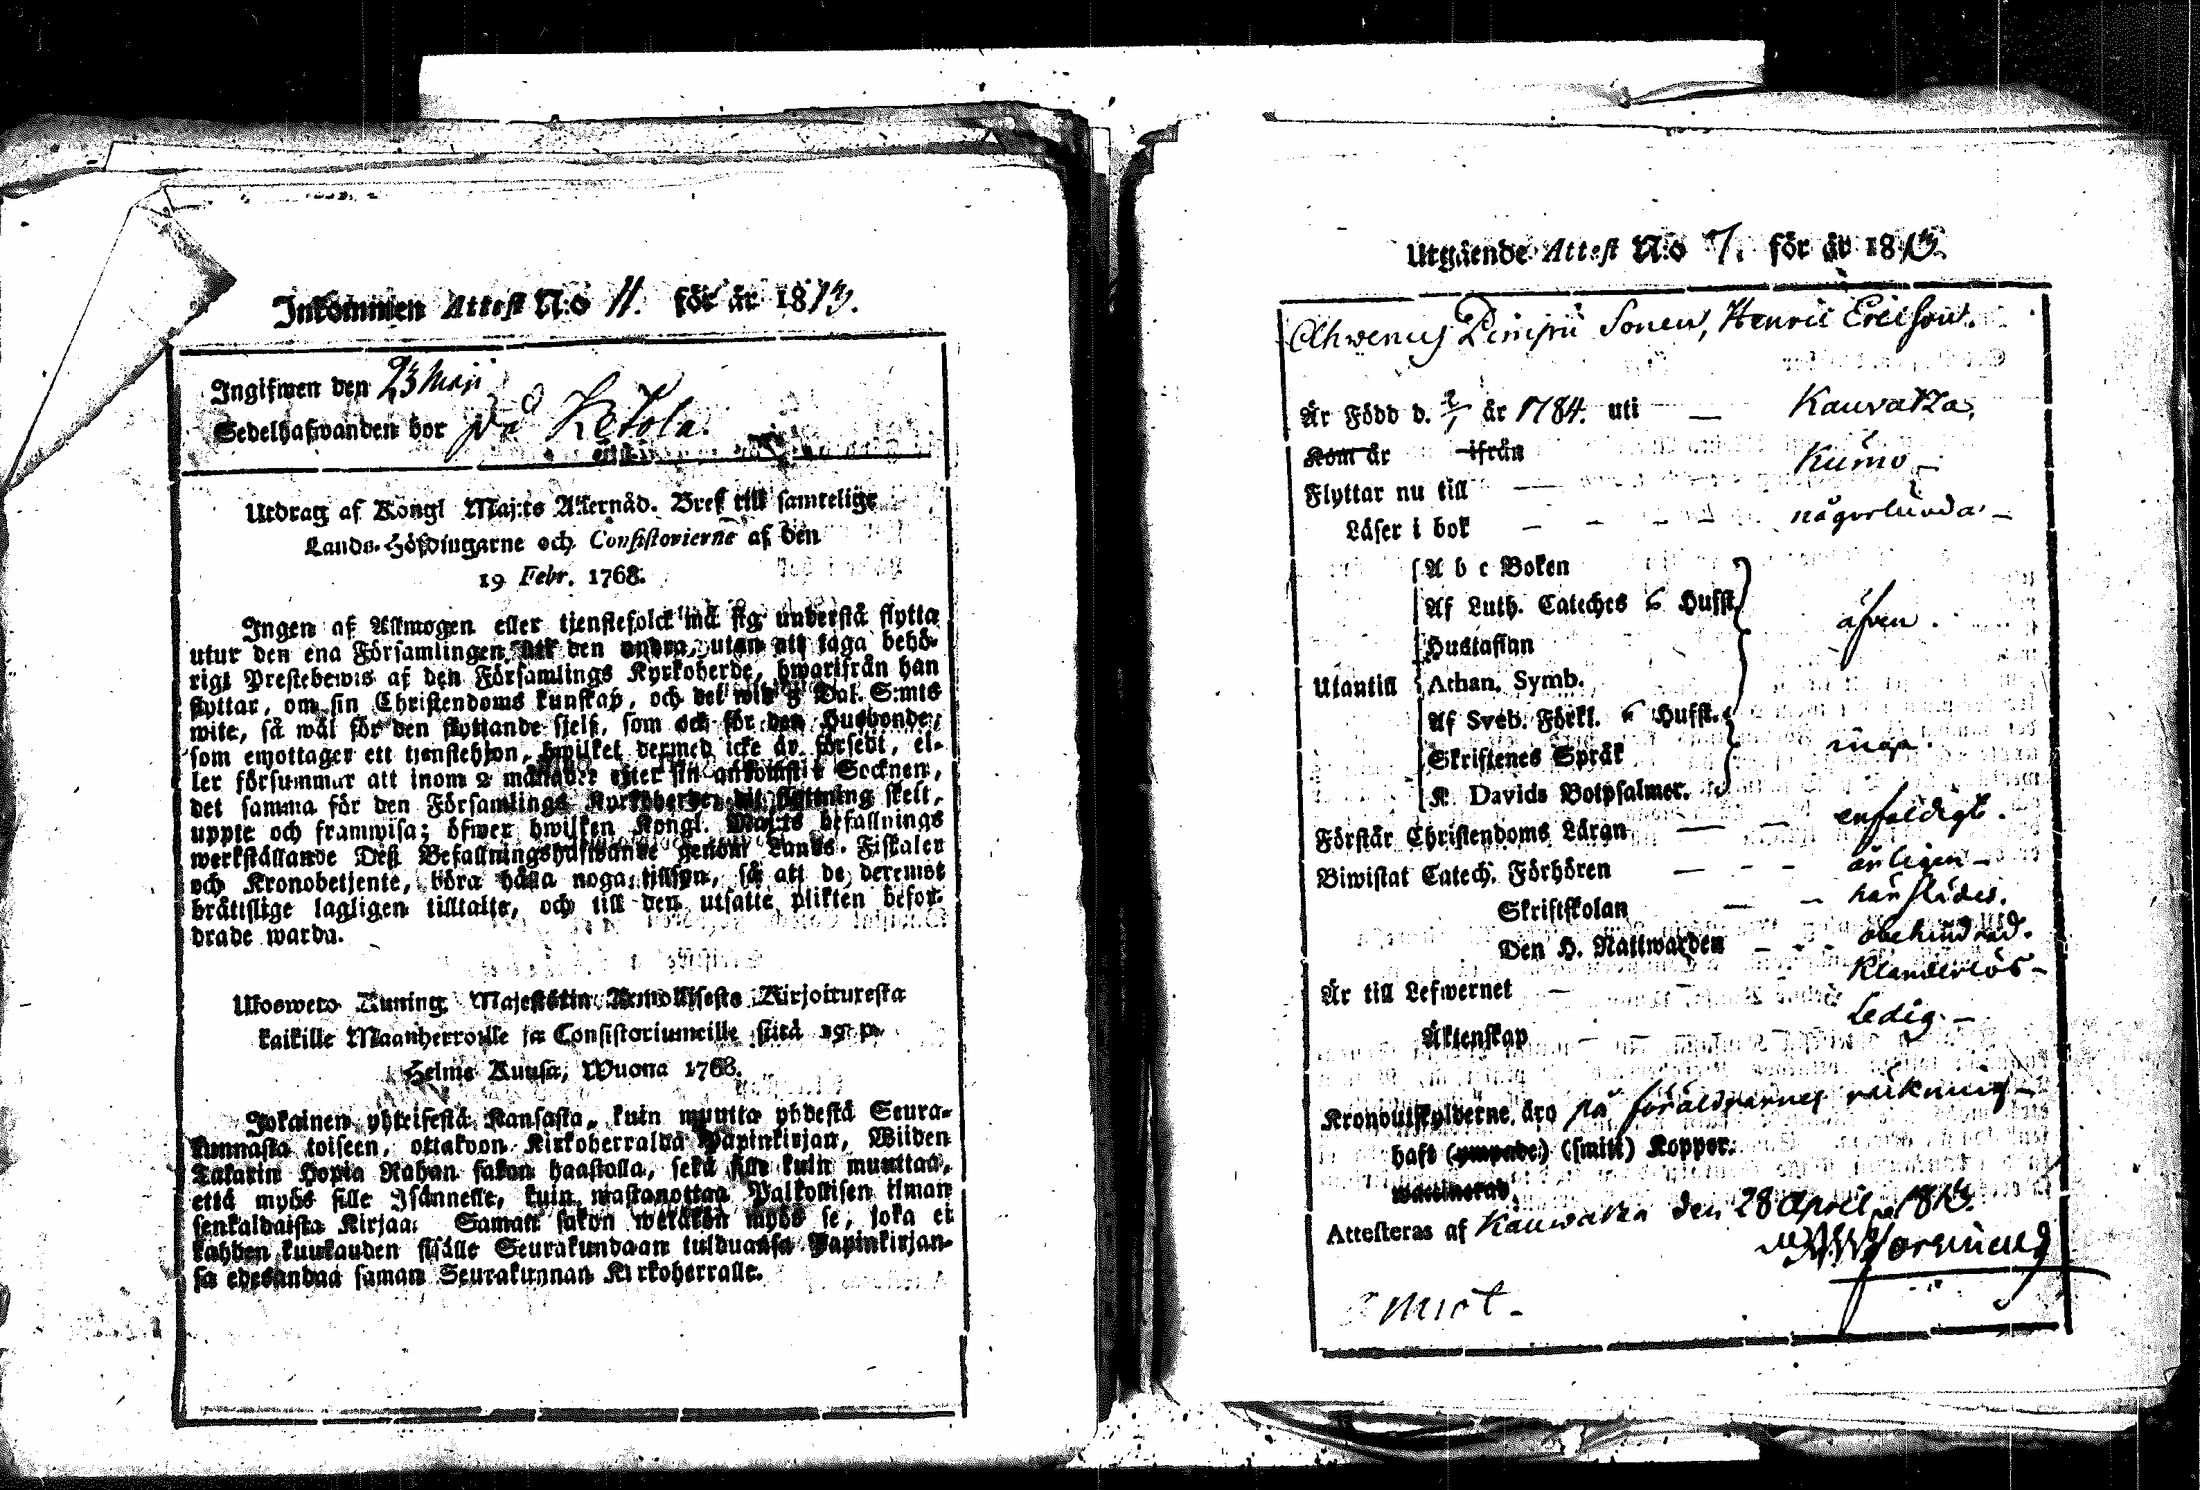 Inkommen Attest N:o 11. för år 1813.
Ingifwen den 23 Maji
Sedelhafwanden bor på Ketola.
Utdrag af Kongl Maj:ts Allernåd. Bref till samtelige
Lands-Höfdingarne och Consistorierne af den
19 Febr. 1768.
Ingen af Allmogen eller tjenstefolck må sig understå flytta
utur den ena Församlingen till den andra, utan att taga behö-
rigt Prestebewis af den Församlings Kyrkoherde, hwarifrån han
flyttar, om sin Christendoms kunskap, och det wid 5 Dal. S:mts
wite, så wäl för den flyttande sjelf, som ock för den Husbonde,
som emottager ett tjenstehjon, hwilket dermed icke är försedt, el-
ler försummar att inom 2 månader efter sin ankomst i Socknen,
det samma för den Församlings Kyrkoherde dit flyttning skett,
uppte och framwisa; öfwer hwilken Kongl. Maj:ts befallnings
werkställande Deß Befallningshafwande genom Lands-Fiskaler
och Kronobetjente, böra hålla noga tillsyn, så att de deremot
bråttslige lagligen tilltalte, och till den utsatte plikten befor-
drade warda.
Ulosweto Kuning. Majestätin Armollisesta Kirjoituxesta
kaikille Maanherroille ja Consistoriumeille siitä 19 p.
Helme Kuusa, Wuona 1768.
Jokainen yhteisestä Kansasta, kuin muutta yhdestä Seura-
kunnasta toiseen, ottakoon Kirkoherralda Papinkirjan, Wiiden
Talarin Hopia Rahan sakon haastolla, sekä sille kuin muuttaa,
että myös sille Isännelle, kuin wastanottaa Palkollisen ilman
senkaldaista Kirjaa: Saman sakon wetäkön myös se, joka ei
kahden kuukauden sisälle Seurakundaan tulduansa Papinkirjan-
sa edesandaa saman Seurakunnan Kirkoherralle.
Utgående Attest N:o 7. för år 1813.
Ahwenus Pimpu Sonen, Henric Ericsson.
Är Född d. 2/1 år 1784. uti — Kauvatza,
Kom år ifrån
Flyttar nu till — Kumo —
Läser i bok — — — — någorlunda —
A b c Boken
Af Luth. Cateches 6 Hufst.
Hustaflan äfven.
Utantill Athan. Symb.
Af Sveb. Förkl. 6 Hufst.
Skriftenes Språk inga.
K. Davids Botpsalmer.
Förstår Christendoms Läran — — enfaldigt.
Biwistat Catech. Förhören — - - årligen —
Skriftskolan — -
Den H. Nattwarden — - - obehindrad.
Är till Lefwernet — klanderlös —
Äktenskap - - Ledig. —
Kronoutskylderne äro på föräldrarnes räkning —
haft (ympade) (smitt) Koppor.
Attesteras af Kauwatza den 28 April 1813.